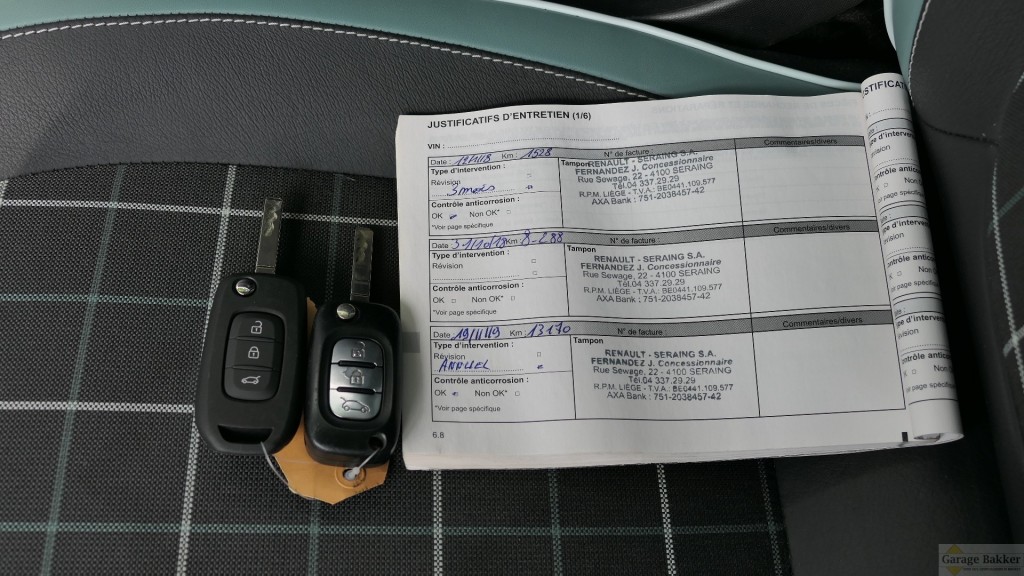 JUSTIFICATIFS D'ENTRETIEN (1/6)
VIN :
Date : Km : 1528 N° de facture : Commentaires/divers
Type d'intervention :
Révision
3 mois
Contrôle anticorrosion :
OK Non OK*
*Voir page spécifique
Tampon
RENAULT - SERAING S.A.
FERNANDEZ J. Concessionnaire
Rue Sewage, 22 - 4100 SERAING
Tél.04 337.29.29
R.P.M. LIÈGE - T.V.A.: BE0441.109.577
AXA Bank : 751-2038457-42
Date Km N° de facture : Commentaires/divers
Type d'intervention :
Révision
Contrôle anticorrosion :
OK Non OK*
*Voir page spécifique
Tampon
RENAULT - SERAING S.A.
FERNANDEZ J. Concessionnaire
Rue Sewage, 22 - 4100 SERAING
Tél.04 337.29.29
R.P.M. LIÈGE - T.V.A.: BE0441.109.577
AXA Bank : 751-2038457-42
Date 19/11/19 Km : 13170 N° de facture : Commentaires/divers
Type d'intervention :
Révision
ANNUEL
Contrôle anticorrosion :
OK Non OK*
*Voir page spécifique
Tampon
RENAULT - SERAING S.A.
FERNANDEZ J. Concessionnaire
Rue Sewage, 22 - 4100 SERAING
Tél.04 337.29.29
R.P.M. LIÈGE - T.V.A.: BE0441.109.577
AXA Bank : 751-2038457-42
6.8
Garage Bakker